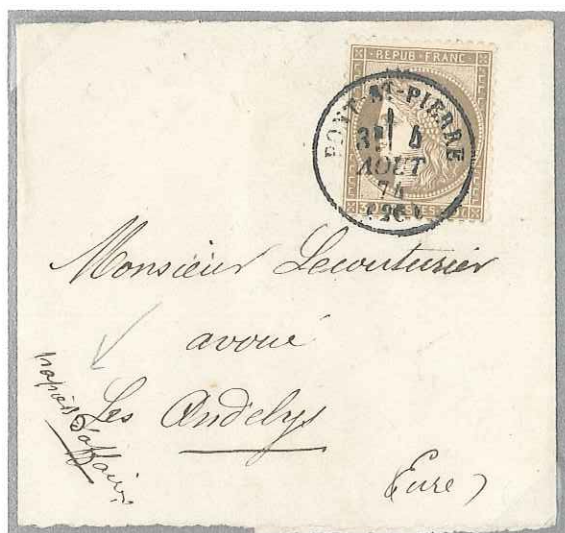 REPUB · FRANC
PONT-ST-PIERRE
3E 4
AOUT
74
(26)
Monsieur Lecouturier
avoué
Les Andelys
papiers d'affaires
Eure